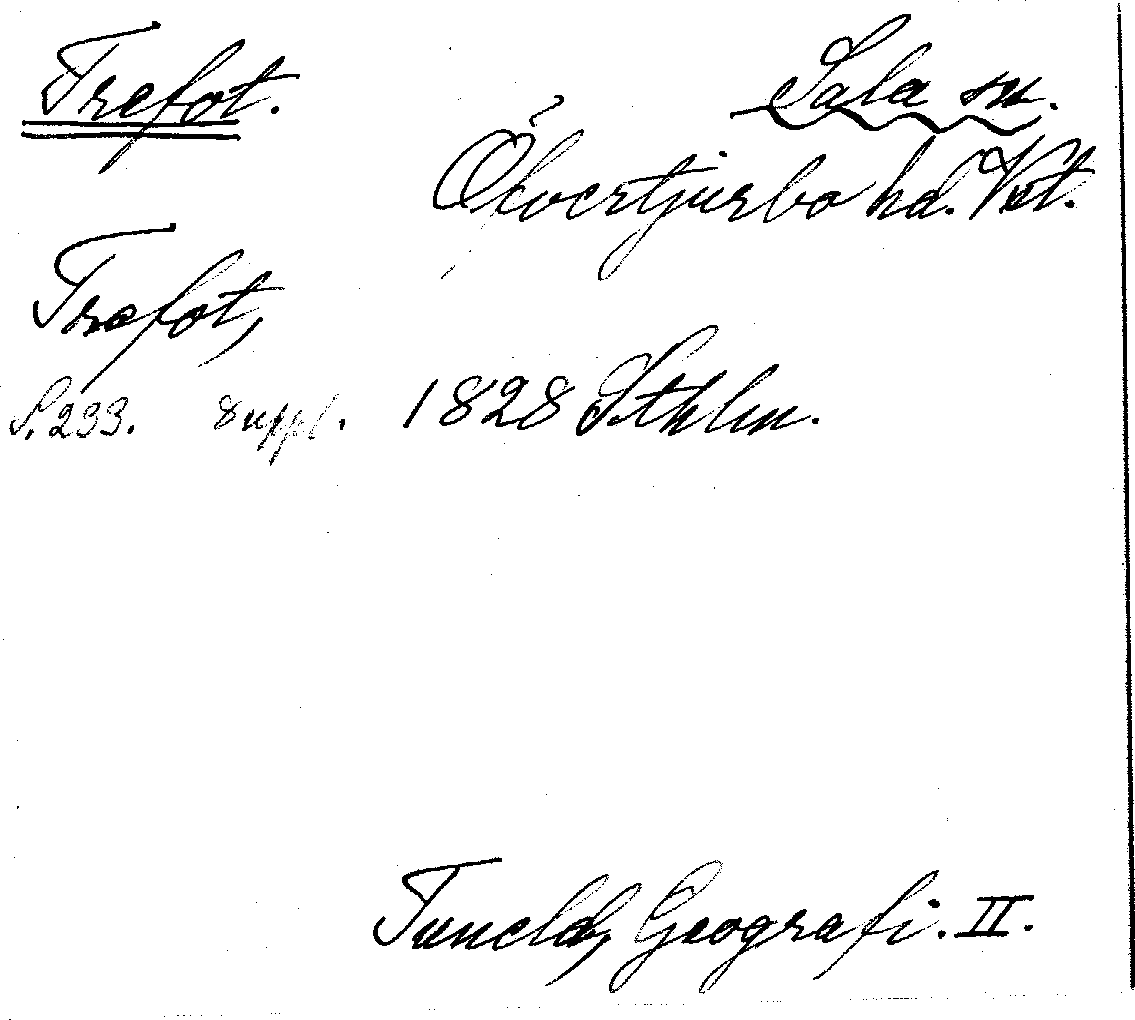 Trefot. Sala sn.
Öfvertjurbo hd. Vstl.
Trefot,
S. 233. Suppl. 1828 Sthlm.
Tuneld, Geografi. II.